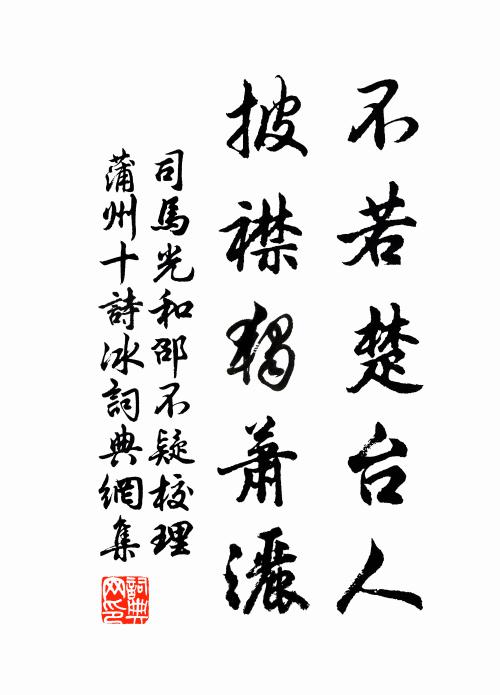 不若楚台人
披襟獨蕭灑
司馬光和邵不疑校理
蒲州十詩冰詞典網集
詞典网印